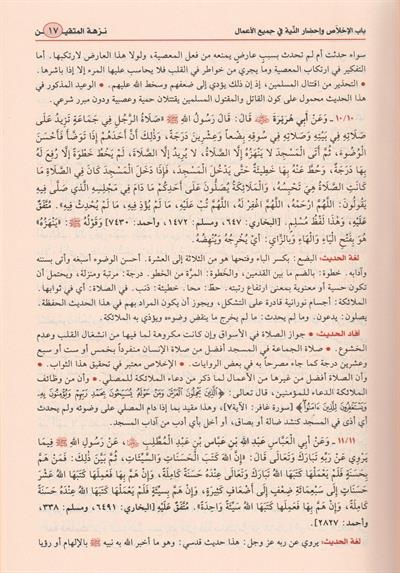 باب الإخلاص وإحضار النّية في جميع الأعمال ١٧ نزهة المتقين
سواء حدثت أم لم تحدث بسبب عارض يمنعه من فعل المعصية، ولولا هذا العارض لارتكبها. أما
التفكير في ارتكاب المعصية وما يجري من خواطر في القلب فلا يحاسب عليها المرء إلا إذا باشرها.
• التحذير من اقتتال المسلمين، إذ إن ذلك يؤدي إلى ضعفهم وسخط الله عليهم. • الوعيد المذكور في
هذا الحديث محمول على كون القاتل والمقتول المسلمين يقتتلان حمية وعصبية ودون مبرر شرعي.
١٠/١٠ ـ وَعَنْ أَبي هُرَيْرَةَ ﷺ قَالَ: قَالَ رَسُولُ اللَّهِ ﷺ: «صَلَاةُ الرَّجُلِ فِي جَمَاعَةٍ تَزِيدُ عَلَى
صَلَاتِهِ فِي بَيْتِهِ وَصَلَاتِهِ فِي سُوقِهِ بِضْعاً وَعِشْرِينَ دَرَجَةً، وَذَلِكَ أَنَّ أَحَدَهُمْ إِذَا تَوَضَّأَ فَأَحْسَنَ
الْوُضُوءَ، ثُمَّ أَتَى الْمَسْجِدَ لَا يَنْهَزُهُ إِلَّا الصَّلَاةُ، لَا يُرِيدُ إِلَّا الصَّلَاةَ، لَمْ يَخْطُ خَطْوَةً إِلَّا رُفِعَ لَهُ
بِهَا دَرَجَةٌ، وَحُطَّ عَنْهُ بِهَا خَطِيئَةٌ حَتَّى يَدْخُلَ الْمَسْجِدَ، فَإِذَا دَخَلَ الْمَسْجِدَ كَانَ فِي الصَّلَاةِ مَا
كَانَتِ الصَّلَاةُ هِيَ تَحْبِسُهُ، وَالْمَلَائِكَةُ يُصَلُّونَ عَلَى أَحَدِكُمْ مَا دَامَ فِي مَجْلِسِهِ الَّذِي صَلَّى فِيهِ
يَقُولُونَ: اللَّهُمَّ ارْحَمْهُ، اللَّهُمَّ اغْفِرْ لَهُ، اللَّهُمَّ تُبْ عَلَيْهِ، مَا لَمْ يُؤْذِ فِيهِ، مَا لَمْ يُحْدِثْ فِيهِ». مُتَّفَقٌ
عَلَيْهِ، وَهَذَا لَفْظُ مُسْلِمٍ. [البخاري: ٦٤٧، ومسلم: ١٤٧٢، وأحمد: ٧٤٣٠] وَقَوْلُهُ ﷺ: «يَنْهَزُهُ»
هُوَ بِفَتْحِ الْيَاءِ وَالْهَاءِ وَبِالزَّايِ: أَيْ يُخْرِجُهُ وَيُنْهِضُهُ.
لغة الحديث: البضع: بكسر الباء وفتحها هو من الثلاثة إلى العشرة. أحسن الوضوء أسبغه وأتى بسنته
وآدابه. خطوة: بالضم ما بين القدمين، والخَطوة: المرَّة من الخطو. درجة: مرتبة ومنزلة، ويحتمل أن
تكون حسية أو معنوية بمعنى ارتفاع رتبته. حطّ: محا. خطيئة: ذنب. في الصلاة: أي في ثوابها.
الملائكة: أجسام نورانية قادرة على التشكل، ويجوز أن يكون المراد بهم في هذا الحديث الحفظة.
يصلون: يدعون. وما لم يحدث: ما لم يخرج ما ينقض وضوءه ويؤذي به الملائكة.
أفاد الحديث: • جواز الصلاة في الأسواق وإن كانت مكروهة لما فيها من انشغال القلب وعدم
الخشوع. • صلاة الجماعة في المسجد أفضل من صلاة الإنسان منفرداً بخمس أو ست أو سبع
وعشرين درجة كما جاء مصرحاً به في بعض الروايات. • الإخلاص معتبر في تحقيق هذا الثواب. •
وأن الصلاة أفضل من غيرها من الأعمال لما ذكر من دعاء الملائكة للمصلي. • وأن من وظائف
الملائكة الدعاء للمؤمنين، قال تعالى: ﴿الَّذِينَ يَحْمِلُونَ الْعَرْشَ وَمَنْ حَوْلَهُ يُسَبِّحُونَ بِحَمْدِ رَبِّهِمْ وَيُؤْمِنُونَ بِهِ
وَيَسْتَغْفِرُونَ لِلَّذِينَ ءَامَنُوا﴾ [سورة غافر: الآية٧]، وهذا مقيد بما إذا دام المصلي على وضوئه ولم يحدث
أي أذى في المسجد كنشد ضالة أو بصاق، أو أخل بأي أدب من آداب المسجد.
١١/١١ ـ وَعَنْ أَبِي الْعَبَّاسِ عَبْدِ اللَّهِ بْنِ عَبَّاسِ بْنِ عَبْدِ الْمُطَّلِبِ ﷺ، عَنْ رَسُولِ اللَّهِ ﷺ فِيمَا
يَرْوِي عَنْ رَبِّهِ تَبَارَكَ وَتَعَالَى قَالَ: «إِنَّ اللَّهَ كَتَبَ الْحَسَنَاتِ وَالسَّيِّئَاتِ، ثُمَّ بَيَّنَ ذَلِكَ: فَمَنْ هَمَّ
بِحَسَنَةٍ فَلَمْ يَعْمَلْهَا كَتَبَهَا اللَّهُ تَبَارَكَ وَتَعَالَى عِنْدَهُ حَسَنَةً كَامِلَةً، وَإِنْ هَمَّ بِهَا فَعَمِلَهَا كَتَبَهَا اللَّهُ عَشْرَ
حَسَنَاتٍ إِلَى سَبْعِمَائَةِ ضِعْفٍ إِلَى أَضْعَافٍ كَثِيرَةٍ، وَإِنْ هَمَّ بِسَيِّئَةٍ فَلَمْ يَعْمَلْهَا كَتَبَهَا اللَّهُ عِنْدَهُ حَسَنَةً
كَامِلَةً، وَإِنْ هَمَّ بِهَا فَعَمِلَهَا كَتَبَهَا اللَّهُ سَيِّئَةً وَاحِدَةً». مُتَّفَقٌ عَلَيْهِ [البخاري: ٦٤٩١، ومسلم: ٣٣٨،
وأحمد: ٢٨٢٧].
لغة الحديث: يروي عن ربه عز وجل: هذا حديث قدسي: وهو ما أخبر الله به نبيه ﷺ بالإلهام أو رؤيا